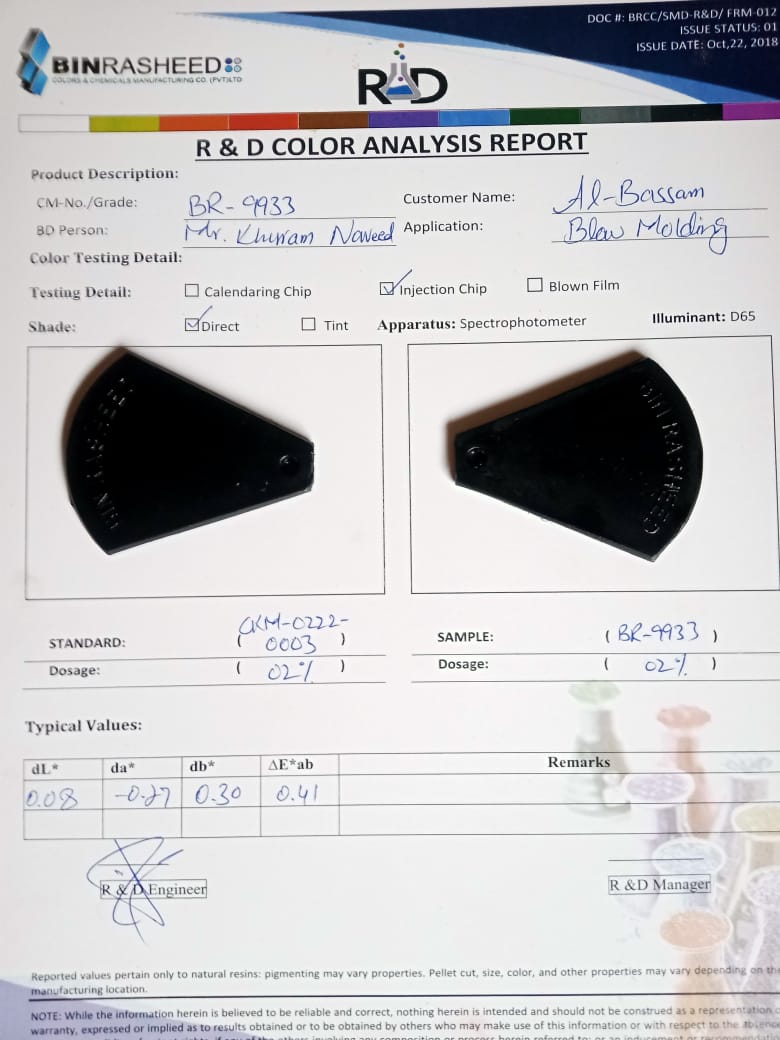 DOC #: BRCC/SMD-R&D/ FRM-012
ISSUE STATUS: 01
ISSUE DATE: Oct,22, 2018
BINRASHEED
COLORS & CHEMICALS MANUFACTURING CO. (PVT)LTD
R&D
R & D COLOR ANALYSIS REPORT
Product Description:
CM-No./Grade: BR-9933 Customer Name: Al-Bassam
BD Person: Mr. Khurram Naveed Application: Blow Molding
Color Testing Detail:
Testing Detail: Calendaring Chip Injection Chip Blown Film
Shade: Direct Tint Apparatus: Spectrophotometer Illuminant: D65
BIN RASHEED BIN RASHEED
STANDARD: ( CKM-0222-0003 ) SAMPLE: ( BR-9933 )
Dosage: ( 02% ) Dosage: ( 02% )
Typical Values:
dL* da* db* ΔE*ab Remarks
0.08 -0.27 0.30 0.41
R & D Engineer R &D Manager
Reported values pertain only to natural resins: pigmenting may vary properties. Pellet cut, size, color, and other properties may vary depending on the
manufacturing location.
NOTE: While the information herein is believed to be reliable and correct, nothing herein is intended and should not be construed as a representation
warranty, expressed or implied as to results obtained or to be obtained by others who may make use of this information or with respect to the